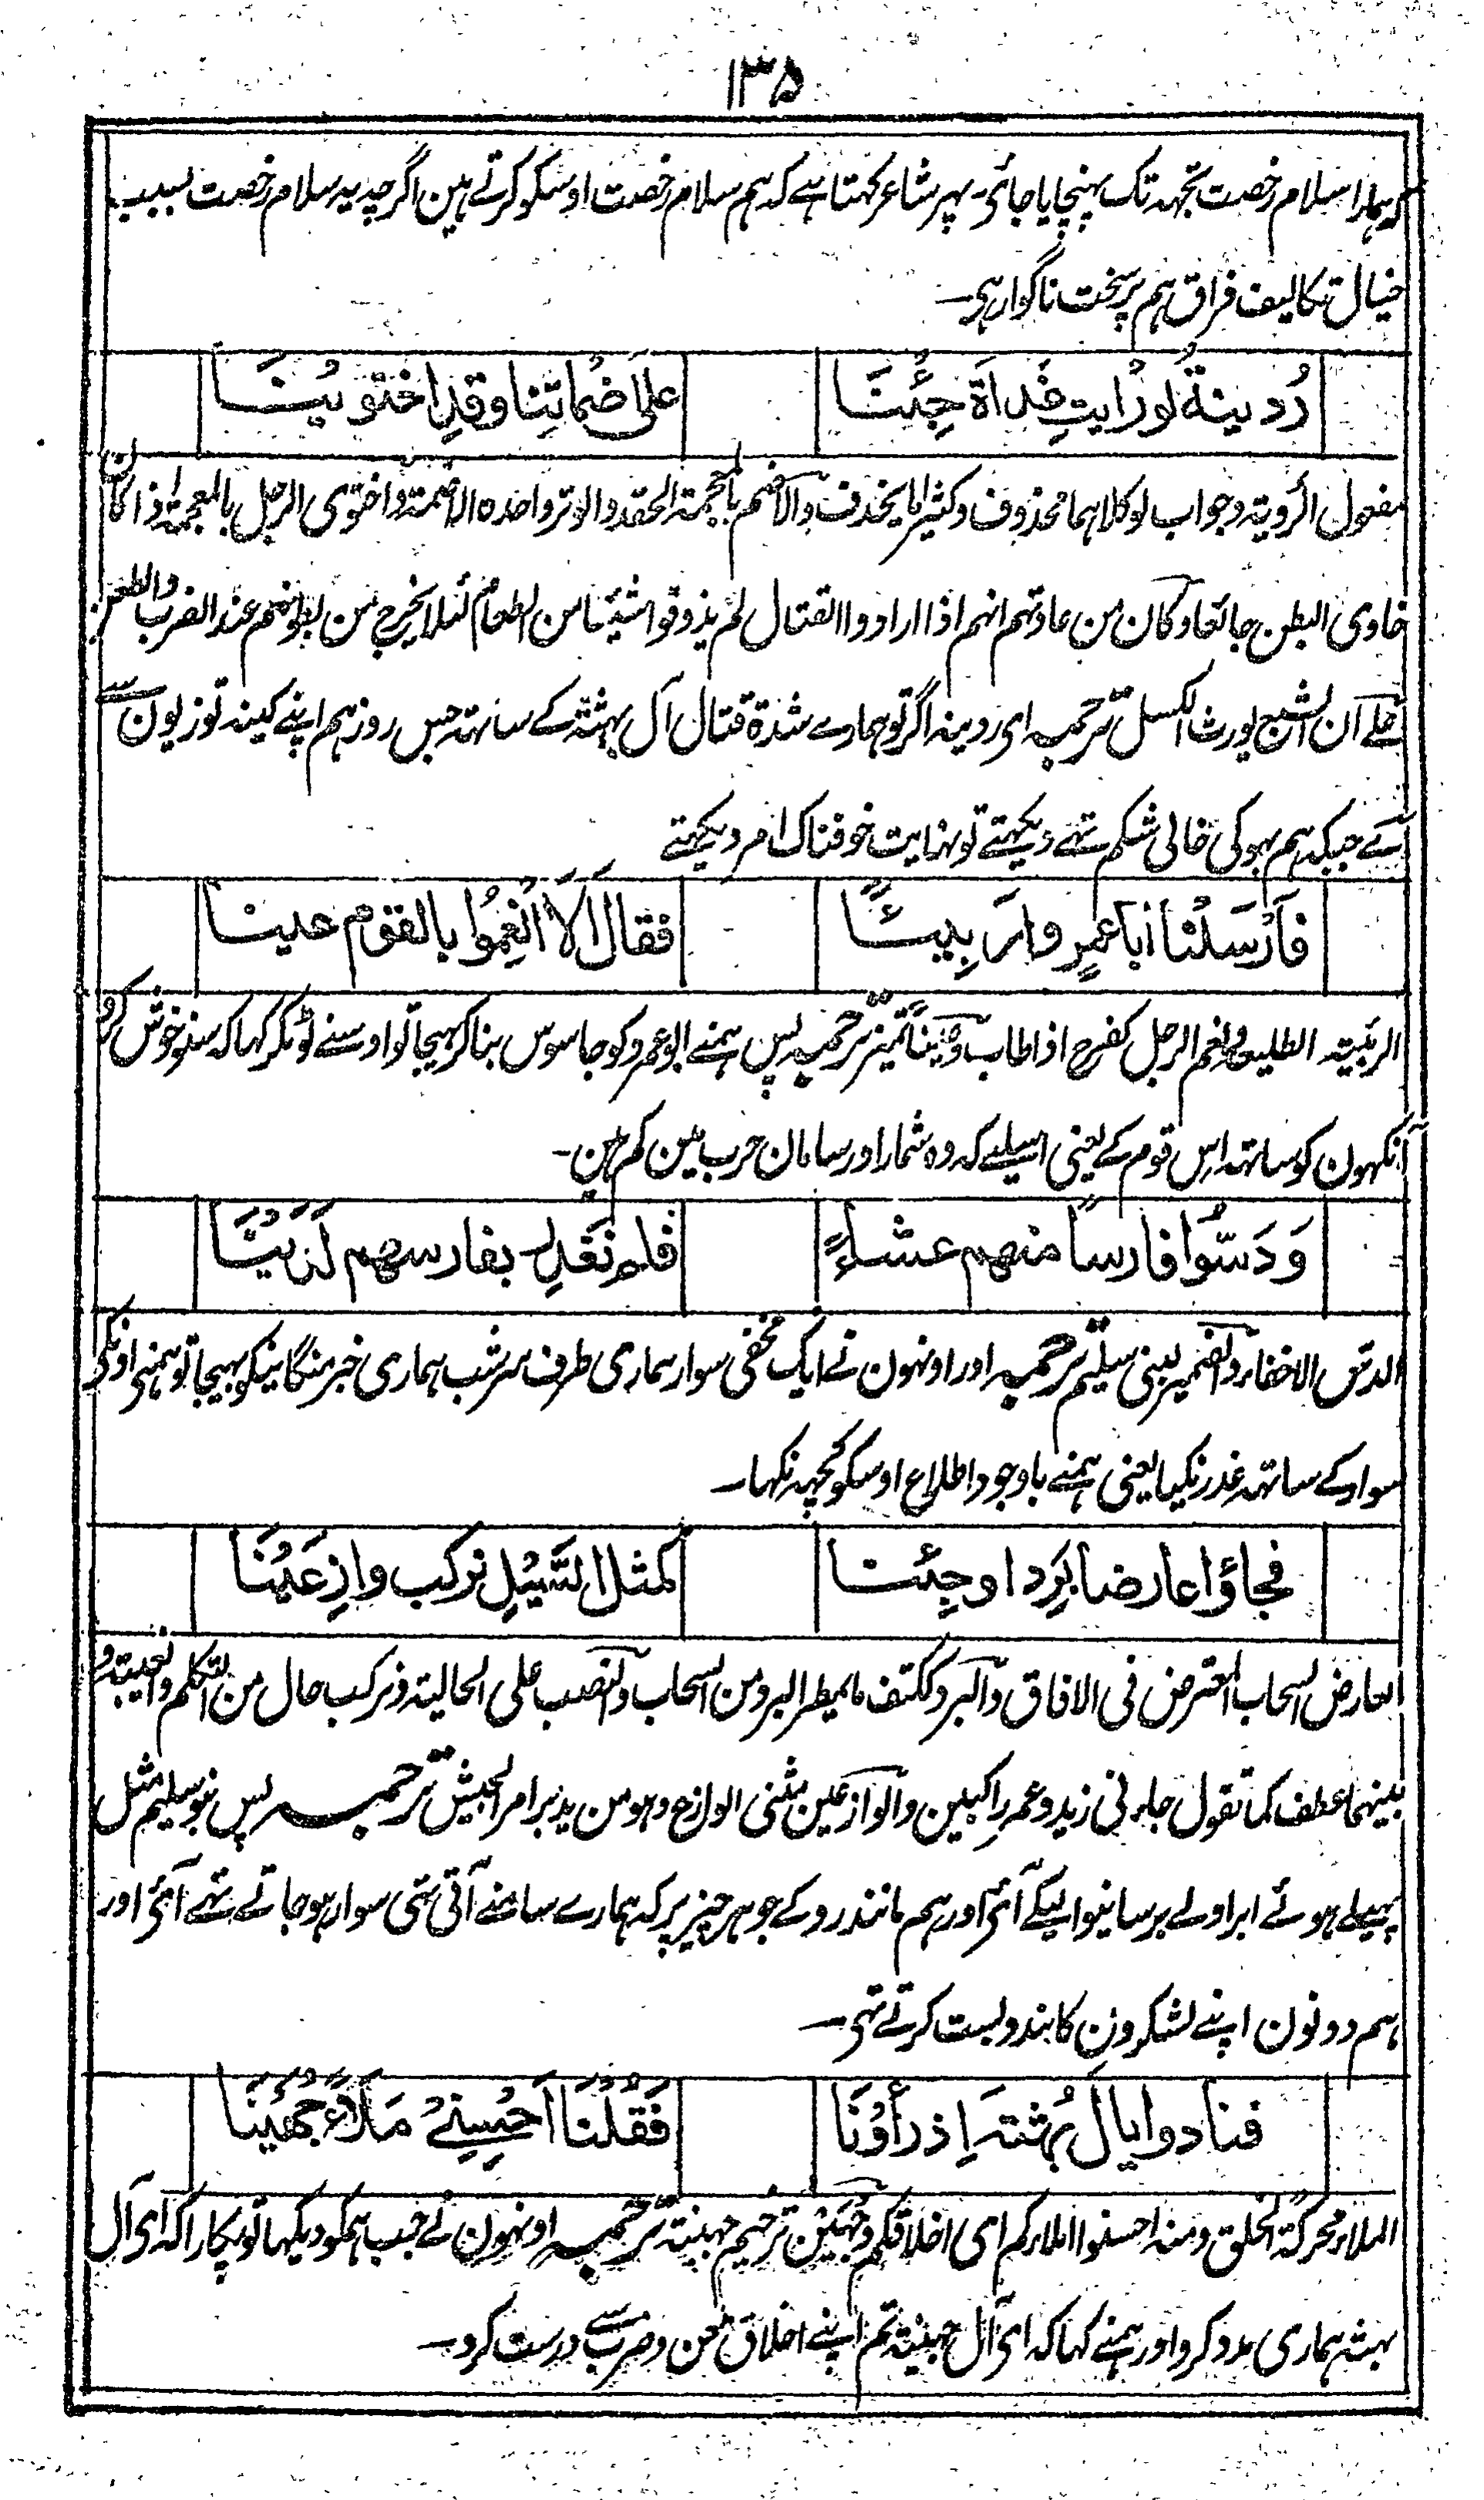 ۱۳۵
کہ ہمارا سلام رخصت تجہہ تک پہنچایا جائی۔ پہر شاعر کہتا ہے کہ ہم سلام رخصت اوسکو کرتے ہین اگرچہ یہ سلام رخصت بسبب
خیال تکالیف فراق ہم پر سخت ناگوار ہی۔
رُدینۃُ لو رُایتِ غداۃَ جِئنَا علیٰ اضماتِنا وقدِ اختویْنَا
مفعول الرویۃ وجواب لو کلاہما محذوف وکثیرا ما یحذف والاضم بالمعجمۃ الحقد والوتر واحدہ الاضمۃ واختوی الرجل بالمعجمۃ اذا کان
خاوی البطن جائعا وکان من عادتہم انہم اذا ارادوا القتال لم یذوقوا شیئا من الطعام لئلا یخرج من بطونہم عند الضرب والطعن
علے ان الشبع یورث الکسل ترجمہ ای ردینہ اگر تو ہمارے شدۃ قتال آل بہثۃ کے ساتہہ جس روز ہم اپنے کینہ توزیون سے
آئے جبکہ ہم بہوکی خالی شکم تہے دیکہتے تو نہایت خوفناک امر دیکہتے
فَاَرْسَلْنا اباعمرٍو رَبِیئًا فقال اَلَا انْعِمُوا بالقوم عینا
الربیئۃ الطلیعۃ ونعم الرجل کفرح اذا طاب وعیناً تمیز ترجمہ پس ہمنے ابو عمرو کو جاسوس بناکر بہیجا تو اوسنے لوٹکر کہا کہ سنو خوش کرو
آنکہون کو ساتہہ اس قوم کے یعنی اسلیے کہ وہ شمار اور سامان حرب مین کم ہین۔
وَدَسُّوا فارسًا منھم عشاءً فلم نَغدِر بفارسھم لَدَیْنَا
الدس الاخفاء والضمیر لبنی سلیم ترجمہ اور اونہون نے ایک مخفی سوار ہماری طرف سرشب ہماری خبر منگانیکو بہیجا تو ہمنی اونکی
سوار کے ساتہہ غدر نکیا یعنی ہمنے باوجود اطلاع اوسکو کچہہ نکہا۔
فجاؤا عارضا بَرِدا وجِئنا کمثل السَّیْلِ نرکب وازِعَیْنَا
العارض السحاب المعترض فی الافاق والبرد ککتف ما یمطر البرد من السحاب والنصب علی الحالیۃ ونرکب حال من المتکلم والغیبۃ و
بینہما عطف کما تقول جاءنی زید وعمرو راکبین والوازعین مثنی الوازع وہو من یدبر امر الجیش ترجمہ پس بنو سلیم مثل
پہیلے ہوئے ابر اولے برسانیوالیکے آئی اور ہم مانند رو کے جو ہر چیز پر کہ ہمارے سامنے آتی تہی سوار ہو جاتے تہے آئی اور
ہم دونون اپنے لشکرون کا بندوبست کرتے تہی۔
فنادوا یالَ بُہثۃَ اِذ رأوْنَا فَقُلْنَا اَحْسِنِیْ مَلَاءً جُھَیْنَا
الملاء محرکۃ الخلق ومنہ احسنوا املاءکم ای اخلاقکم وجُہَیْن ترخیم جہینۃ ترجمہ اونہون نے جب ہمکو دیکہا تو پکارا کہ ای آل
بہثہ ہماری مدد کرو اور ہمنے کہا کہ ای آل جہینۃ تم اپنے اخلاق طعن وضرب سے درست کرد۔